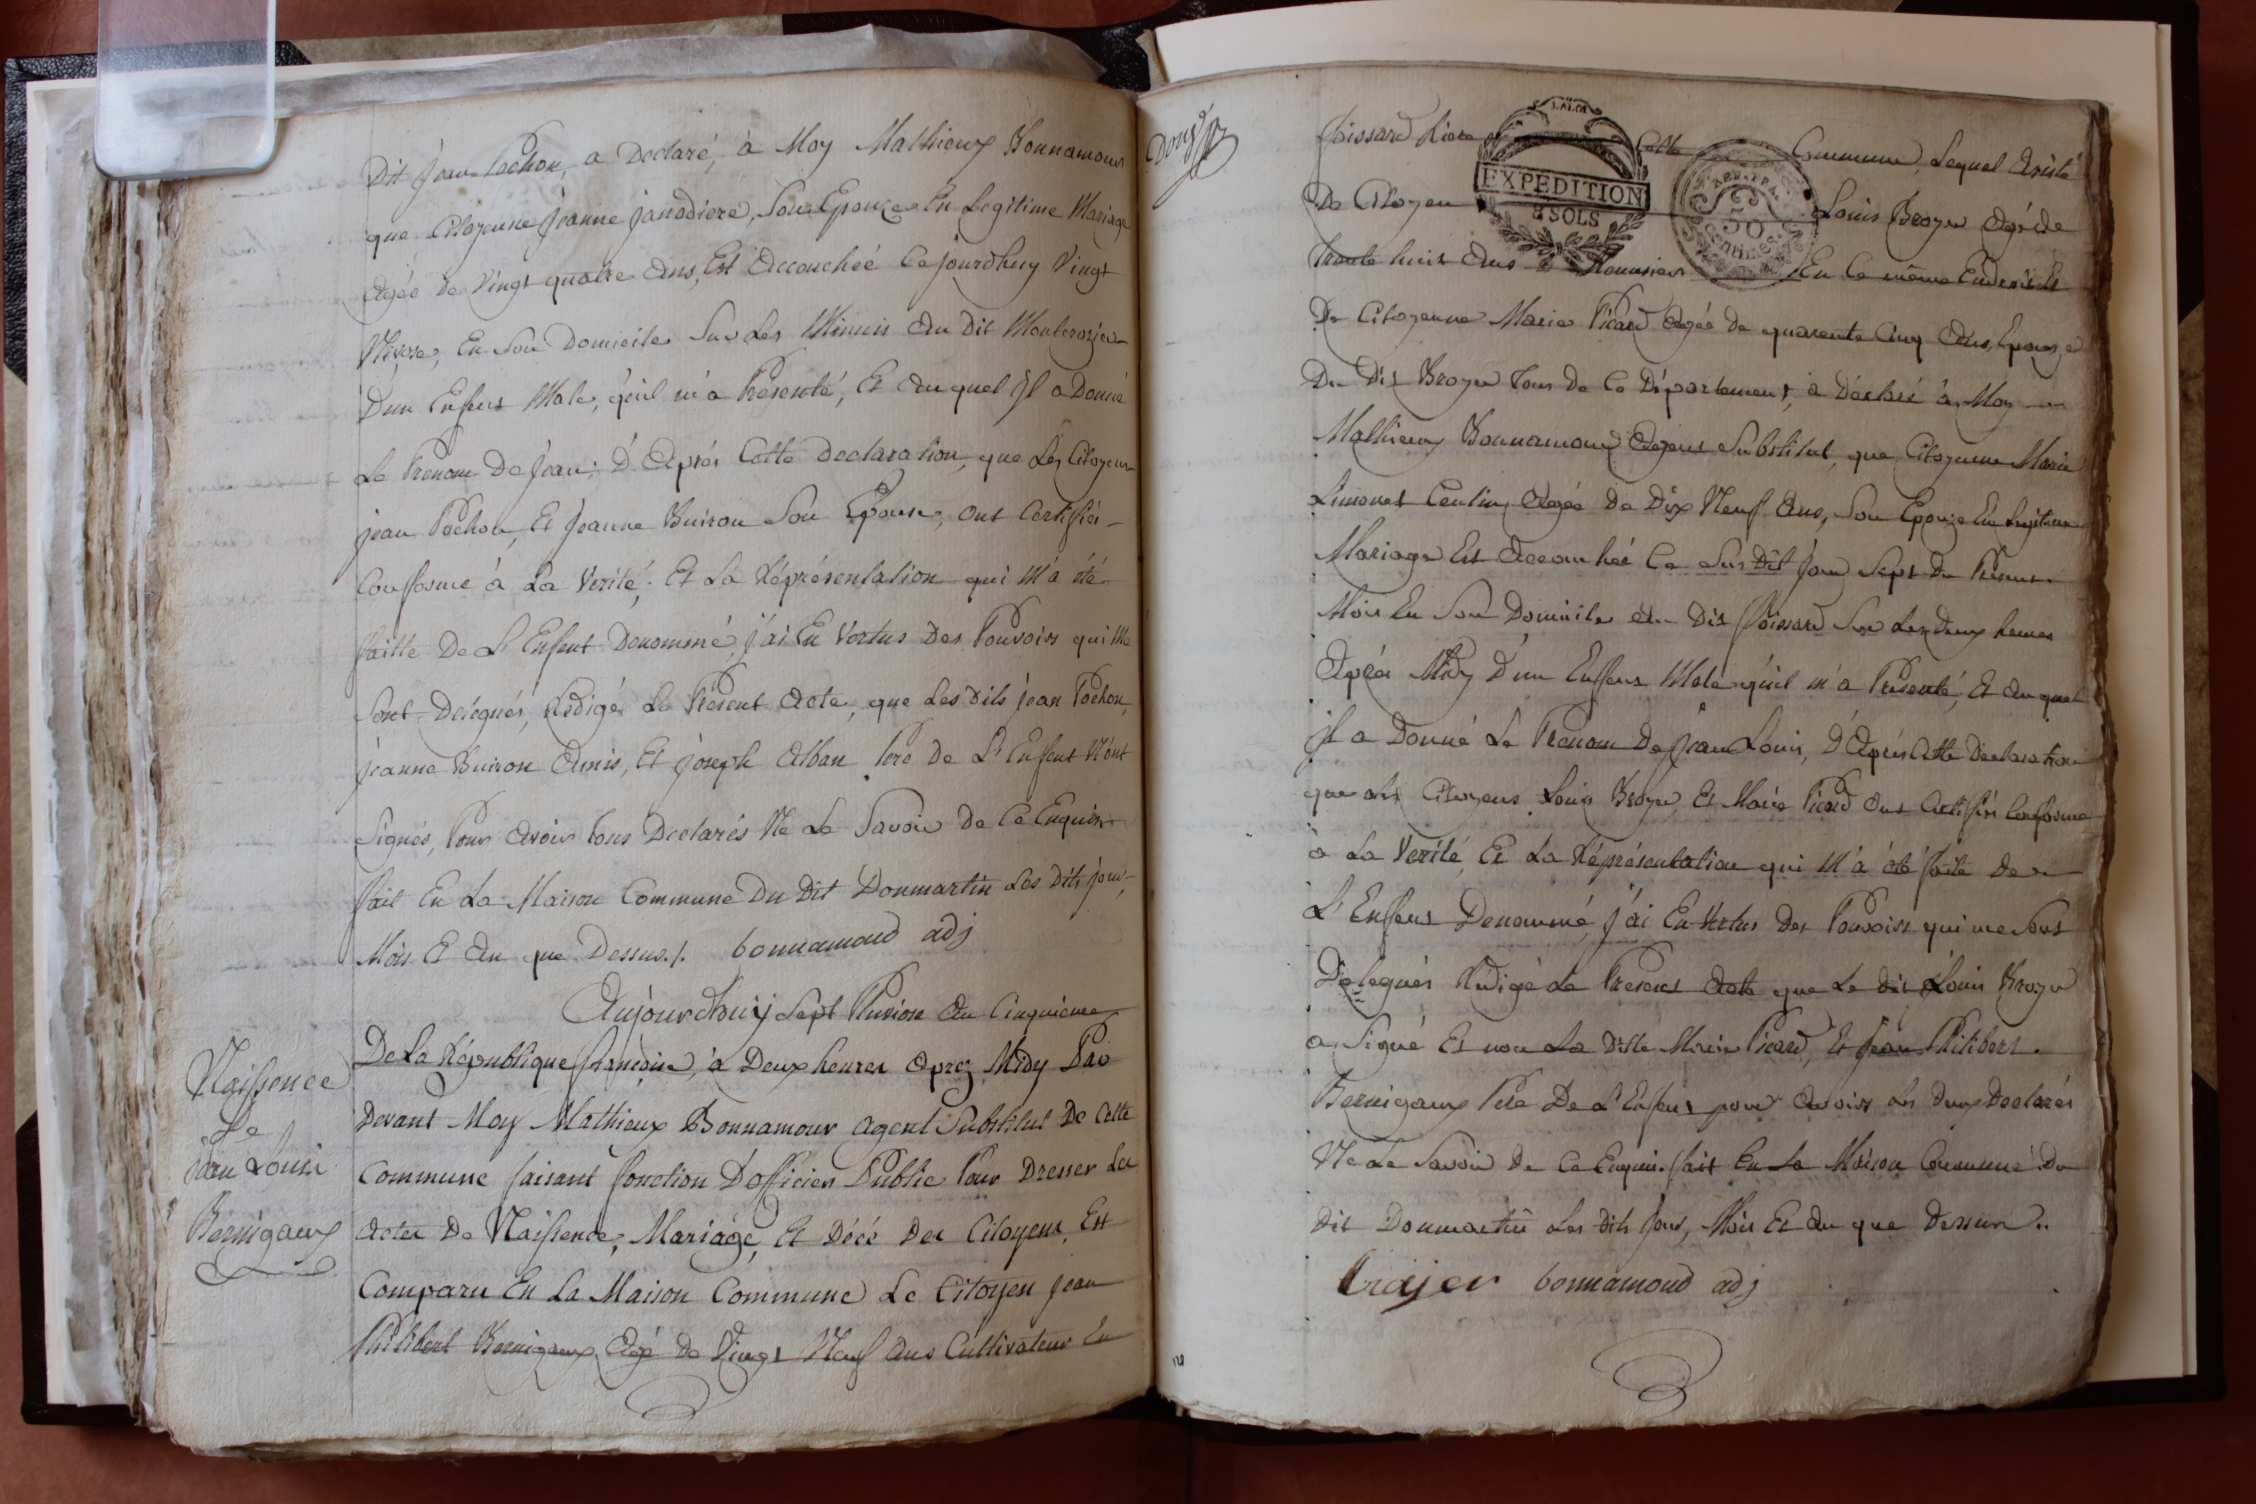 Dit jean Pochon, a Declaré, à Moy Mathieux Bonnamour
que Citoyenne jeanne janodiere, Son Epouze En Legitime Mariage
Agée de Vingt quatre Ans, Est Accouchée Ce jourdhuy Vingt
Nivose, En Son Domicile Sur Les Minuit Au Dit
D'un Enfent Male, qu'il m'a Présenté, Et Au quel Jl a Donné
Le Prenom De Jean; D'Aprés Cette Declaration, que Les Citoyens
jean Pochon, Et Jeanne Buiron Son Epouse, ont Certifiés
Conforme à La Verité, Et La Répréséntation qui M'a été
faitte De L'Enfent Denommé, j'ai En Vertus Des Pouvoirs qui Me
Sont Delegués, Redigé Le Présent Acte, que Les Dits jean Pochon,
jeanne Buiron Amis, Et joseph Alban Pere De L'Enfent N'ont
Signés, Pour Avoir tous Declarés Ne Le Savoir De Ce Enquis
fait En La Maison Commune Du Dit Donmartin Les Dits jour,
Mois Et An que Dessus./. bonnamoud adj
Naissence
De
jean Louis
Bernigaux
Aujourdhuij Sept Pluviose An Cinquieme
De La République francoise, à Deux heures Aprez Midy Par
Devant Moy Mathieux Bonnamour Agent Substitut De Cette
Commune faisant fonction D'officier Public Pour Dresser Les
Actes De Naissence, Mariage, Et Décé Des Citoyens, Est
Comparu En La Maison Commune Le Citoyen jean
Philibert Bernigaux Agé De Vingt Neuf Ans Cultivateur En
Douze
foissard Riere Cette Commune, Lequel Assisté
De Citoyen Louis Broyer Agé de
trente huit Ans En Ce même Endroit Et
De Citoyenne Marie Picard Agée de quarente Cinq Ans, Epouze
Du Dit Broyer tous De Ce Département, a Déclaré à Moy
Mathieux Bonnamour Agent Substitut, que Citoyenne Marie
Agée De Dix Neuf Ans, Son Epouze En Legitime
Mariage Est Accouchée Ce Sus Dit jour Sept Du Présent
Mois En Son Domicile Au Dit foissard Sur Les Deux heures
Aprés Midy D'un Enffent Male qu'il m'a Présenté, Et Au quel
jl a Donné Le Prenom De Jean Louis, D'Aprés Cette Declaration
que Les Citoyens Louis Broyer Et Marie Picard Ont Certifiés Conforme
à La Verité, Et La Répréséntation qui M'a été faite De
L'Enffent Denommé, j'ai En Vertus Des Pouvoirs qui me Sont
Délegués Redigé Le Présent Acte que Le Dit Louis Broyer
a Signé Et non La Ditte Marie Picard, Et Jean Philibert
Bernigaux Pere De L'Enfent pour Avoir Les Deux Declarés
Ne Le Savoir De Ce Enquis. fait En La Maison Commune Du
Dit Donmartin Les Dits jour, Mois Et An que Dessus..
braјer bonnamoud adj
EXPEDITION
8 SOLS
REP. FRA.
50
CENTIMES